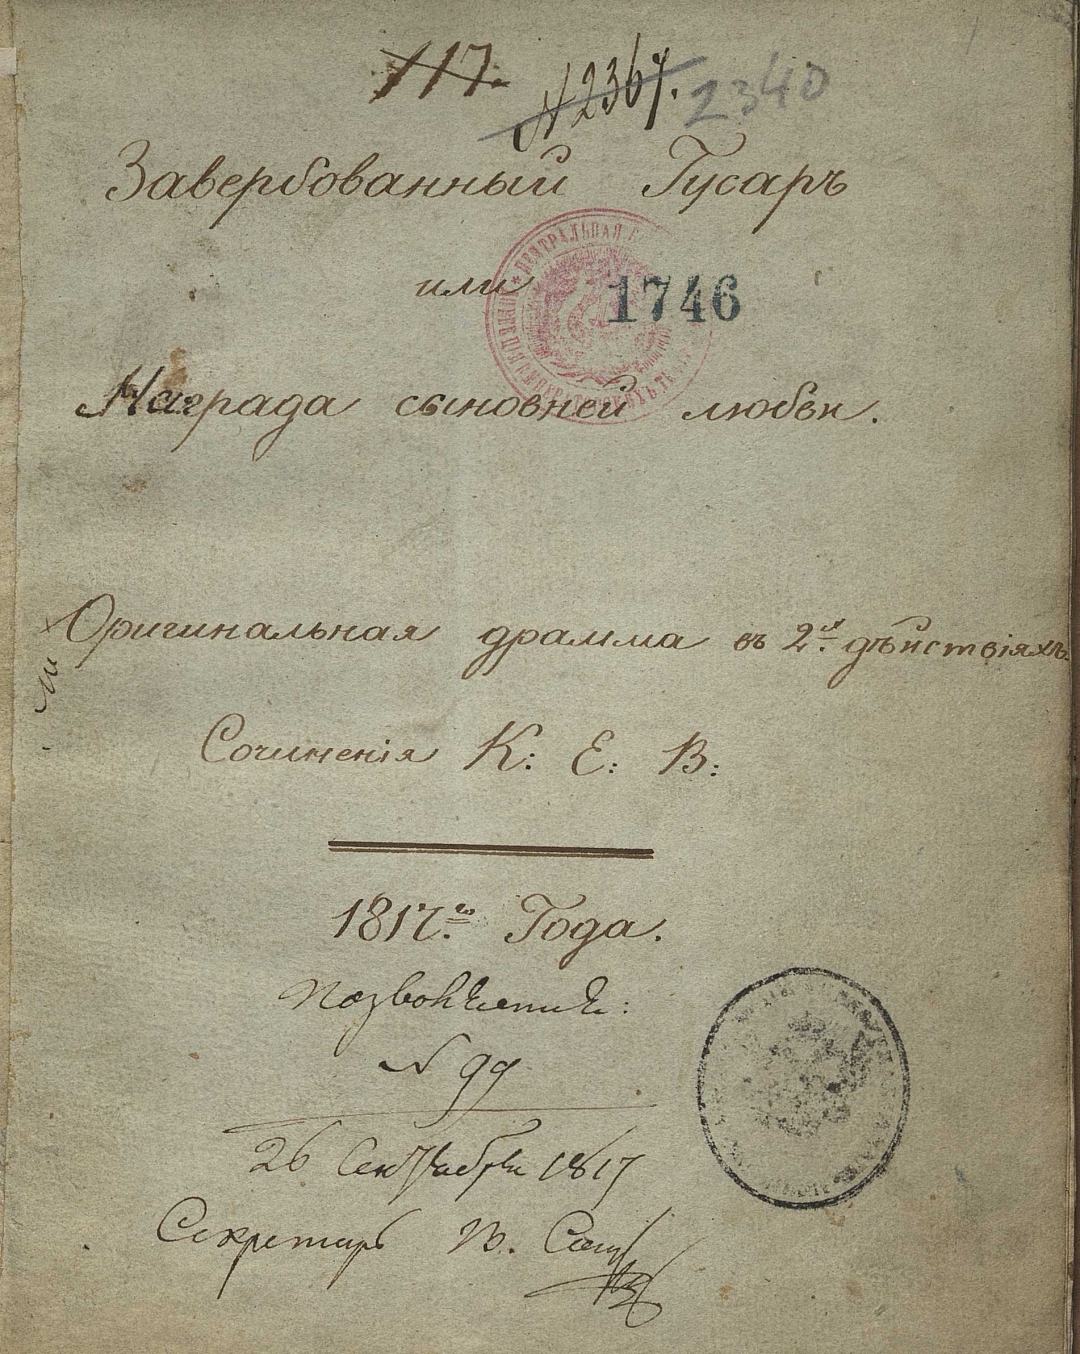 117.
N 2367. 2340
Завербованный Гусаръ
или
1746
Награда сыновней любви.
Оригинальная драмма въ 2хъ дѣйствіяхъ.
Сочиненія К: Е: В:
1817го Года.
N 99
26 Сентября 1817
Секретарь В.